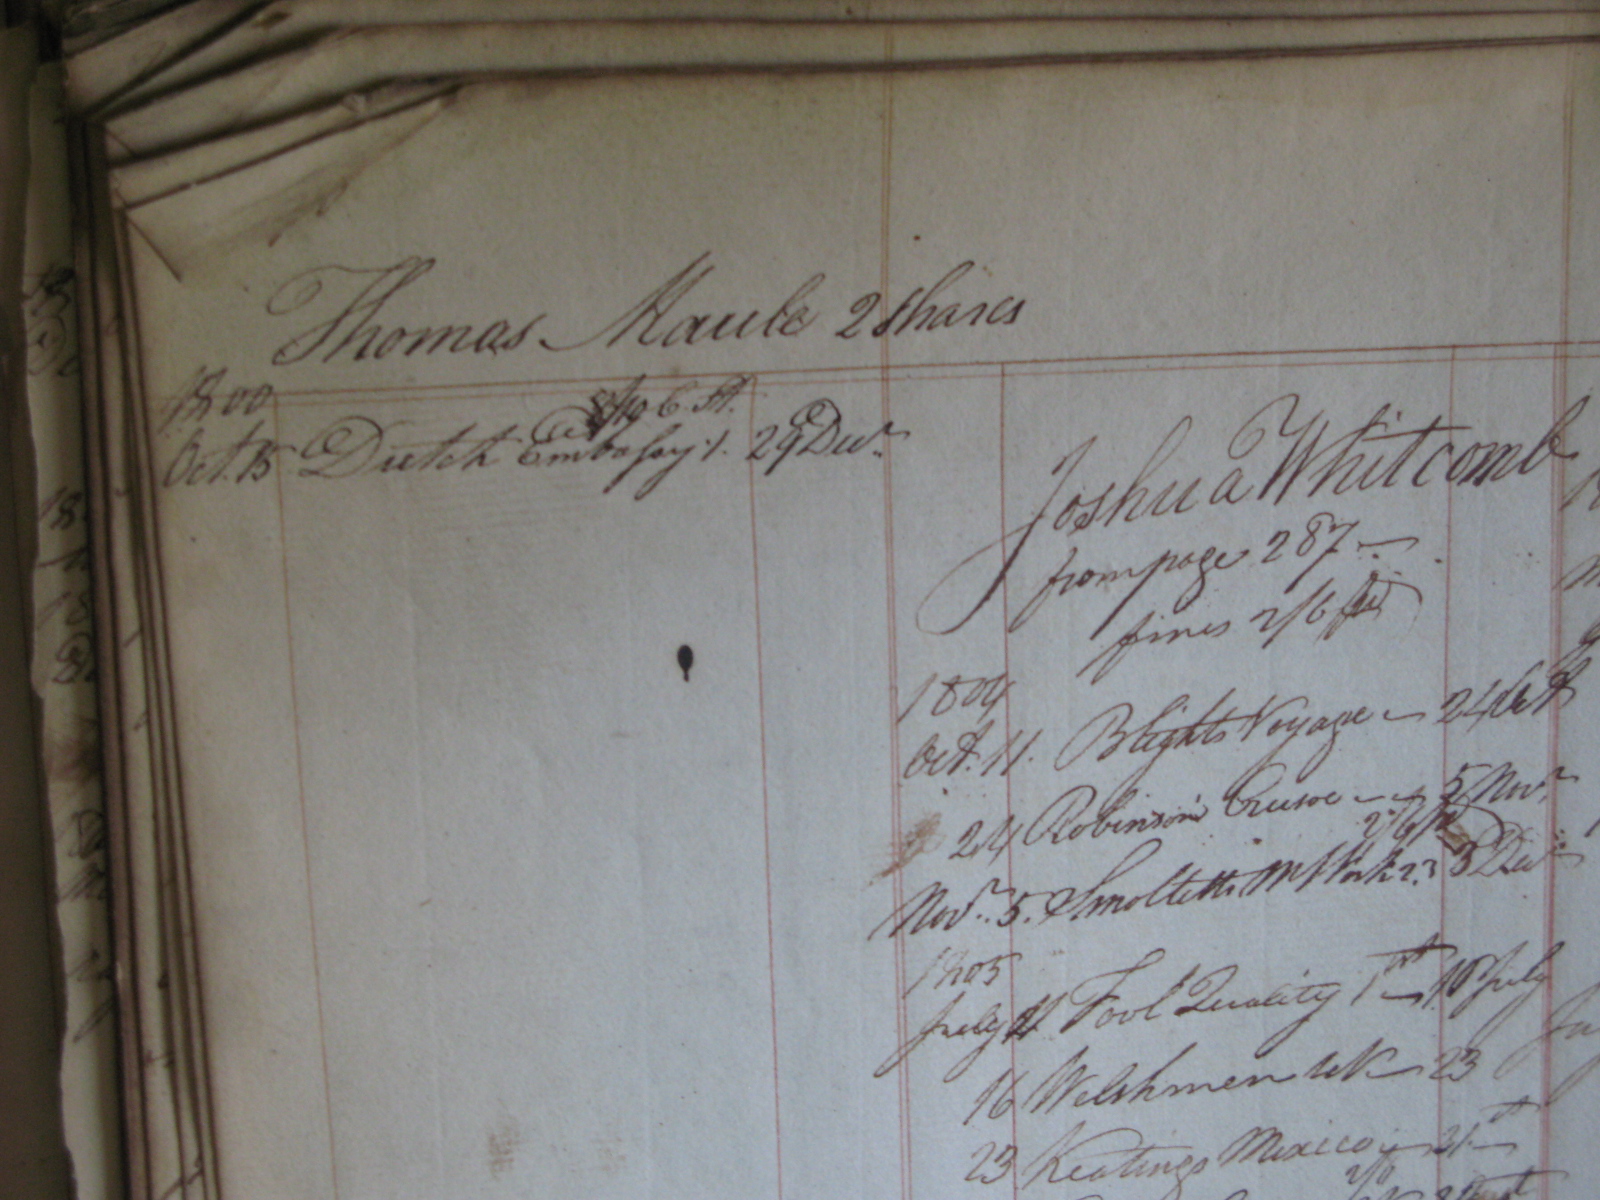 Thomas Maule 2 Shares
1800
Oct. 15 Dutch Embassy 1. 29 Decr
Joshua Whitcomb
from page 287
fines 2/6 pd
1804
Oct. 11. Blights Voyage 24 Oct
24 Robinson Crusoe 5 Novr
2/6 pd
Novr. 5. Smolletts Works 2. 3 Decr
1805
July Fool Quality 1st 10 July
16 Welshmen 23
23 Keatings Mexico 21